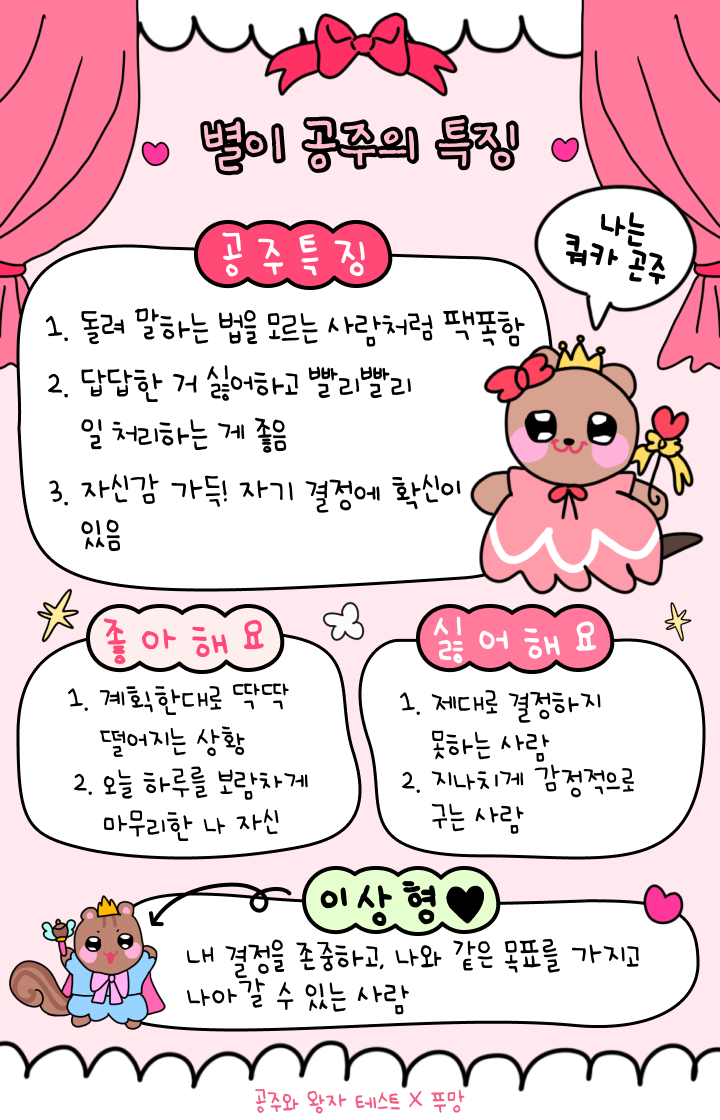 별이 공주의 특징
나는
쿼카 공주
공주특징
1. 돌려 말하는 법을 모르는 사람처럼 팩폭함
2. 답답한 거 싫어하고 빨리빨리
일 처리하는 게 좋음
3. 자신감 가득! 자기 결정에 확신이
있음
좋아해요
1. 계획한대로 딱딱
떨어지는 상황
2. 오늘 하루를 보람차게
마무리한 나 자신
싫어해요
1. 제대로 결정하지
못하는 사람
2. 지나치게 감정적으로
구는 사람
이상형
내 결정을 존중하고, 나와 같은 목표를 가지고
나아갈 수 있는 사람
공주와 왕자 테스트 X 푸망